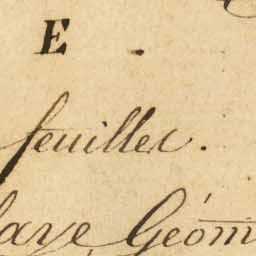 E .
feuilles.
laye, Géom